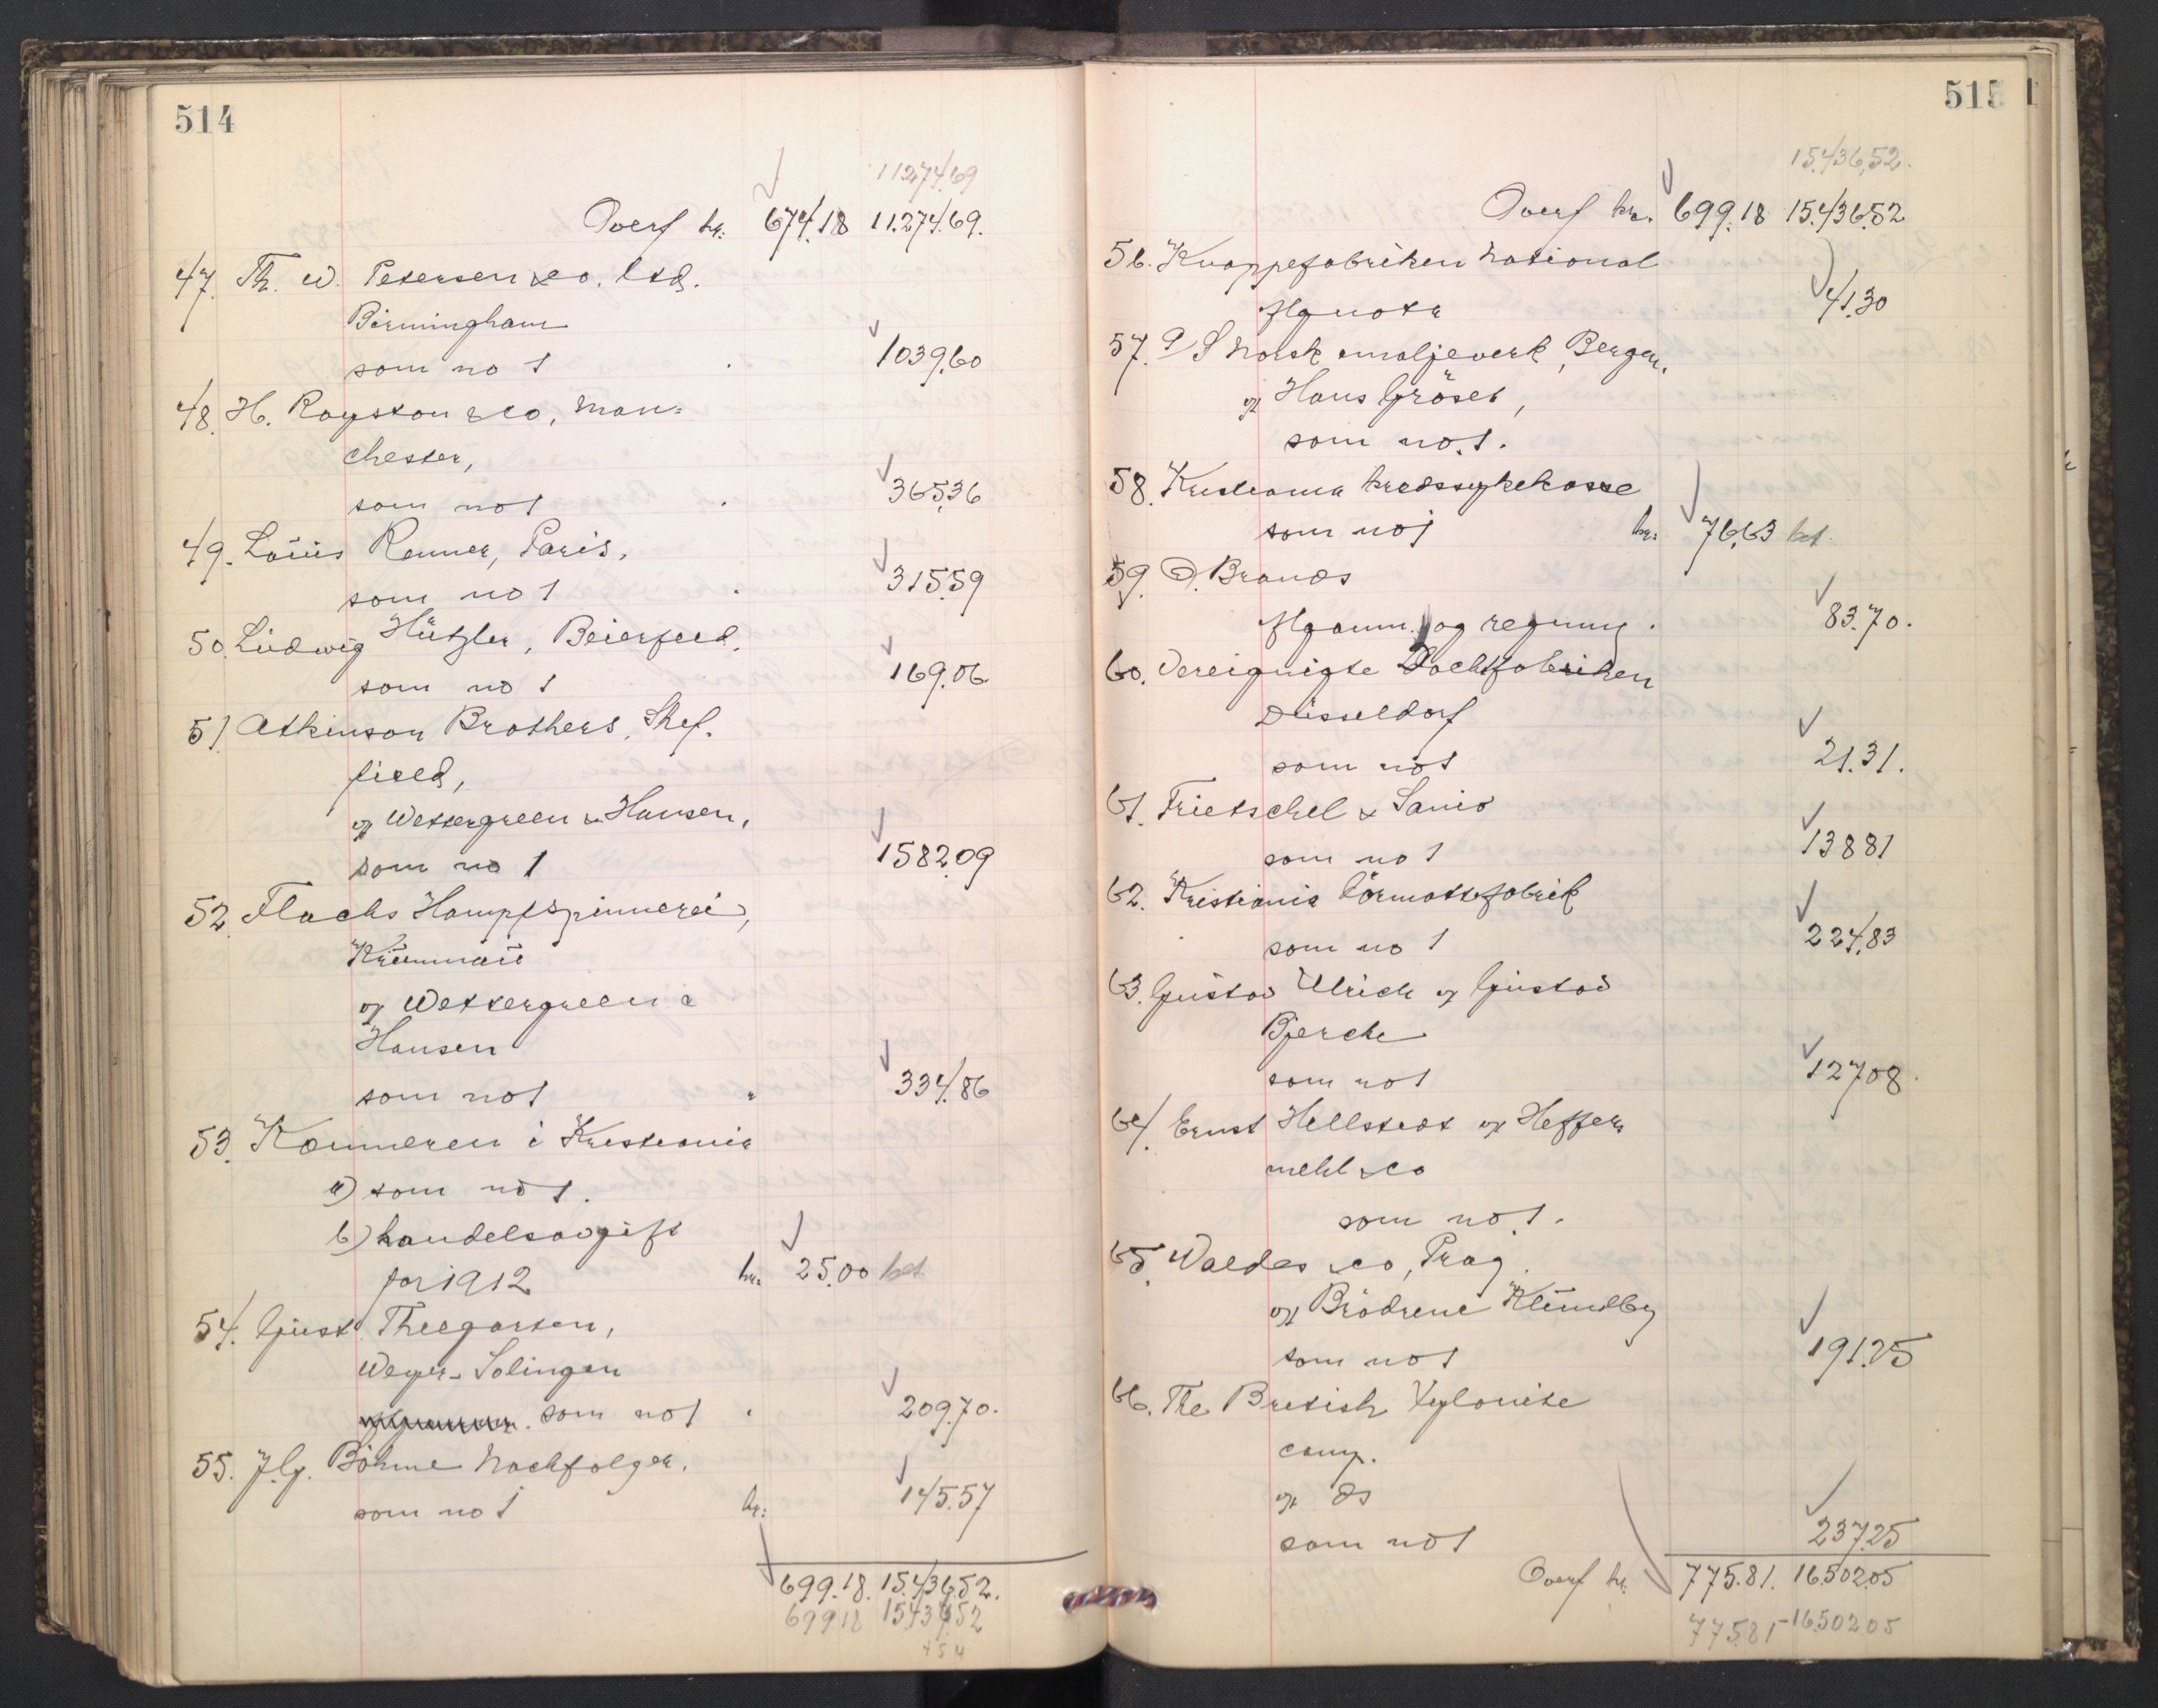 514
11274.69
Overf kr. 674.18 11.274.69.
47. Th. W. Petersen & co. Ltd.
Birmingham
som no 1 1039.60
48. H. Royston & co, Man=
chester,
som no 1 365.36
49. Louis Renner, Paris,
som no 1 315.59
50. Ludwig Hützler, Beierfeld,
som no 1 169.06.
51 Atkinson Brothers, Shef-
field,
og Wettergreen & Hansen,
som no 1 1582.09
52. Flachs Hampfspinnerei,
og Wettergreen &
Hansen
som no 1 334.86
53. Kæmneren i Kristiania
a) som no 1.
b) handelsavgift
for 1912 kr. 25.00 bet
54. Gust. Theegarten,
Weyer-Solingen
som no 1 209.70.
55. J. G. Böhme Nachfolger.
som no 1 kr: 145.57
699.18. 15.436.52.
699.18 15.436.52
454
515
15.436,52.
Overf kr. 699.18 15.436.52
56. Knappefabriken National
41.30
57. A/S Norsk emaljeverk, Bergen,
og Hans Gröset,
som no. 1.
58. Kristiania kredssykekasse
som no 1 kr: 76.63 bet.
59. O. Brands
og regning. 83.70.
60. Vereignigte Dochtfabriken
Düsseldorf
som no 1 21.31.
61. Frietschel & Sanio
som no 1 138.81
62. Kristiania Dörmattefabrik
som no 1 224.83
63. Gustav Ulrich og Gustav
Bjerche
som no 1 127.08.
64. Ernst Hellstedt og Heffer
mehl & co
som no 1.
65. Waldes & co, Prag.
og Brödrene Klundby
som no 1 191.25
66. The British Xylonite
comp.
og ds
som no 1 237.25
Overf kr: 775.81. 16.502.05
775.81 - 16502.05